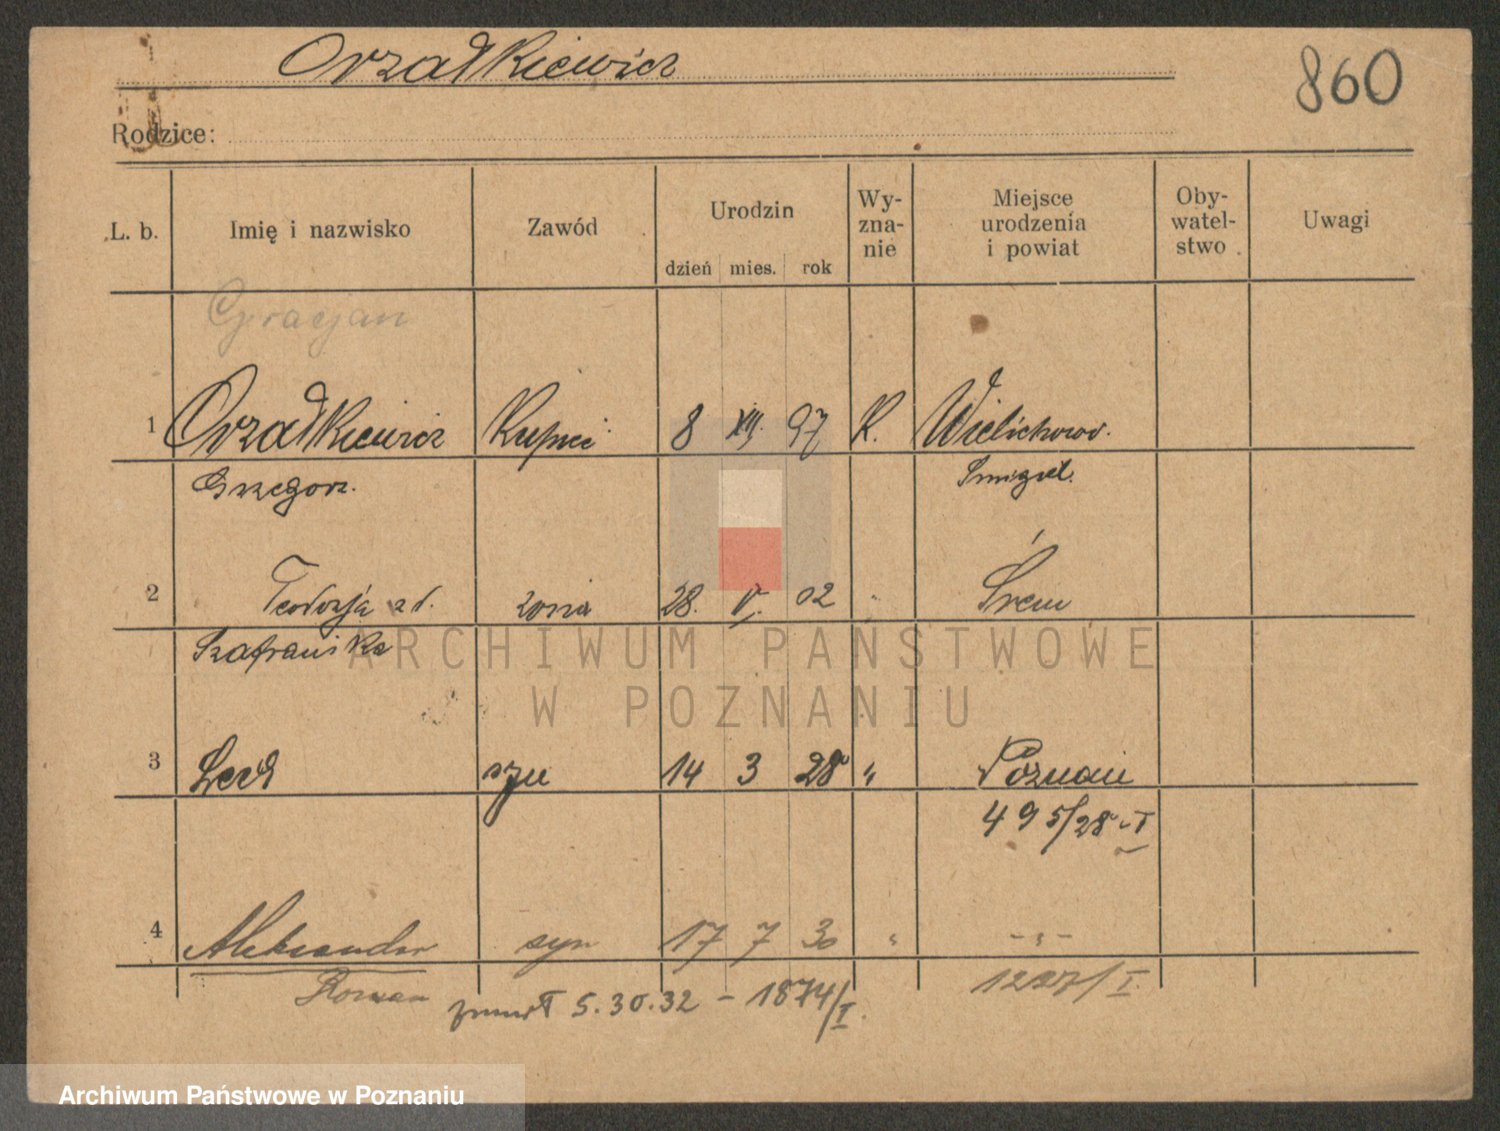 Orzałkiewicz
860
Rodzice:
L. b. Imię i nazwisko Zawód Urodzin dzień mies. rok Wy-zna-nie Miejsce urodzenia i powiat Oby-watel-stwo Uwagi
Gracjan
1 Orzałkiewicz Kupiec 8 XII. 97 K. Wielichowo.
Grzegorz. Śmigiel.
2 Teodozja zd. żona 28. V. 02 " Śrem
Szafrańska
ARCHIWUM PAŃSTWOWE
W POZNANIU
3 Lech syn 14 3 28 " Poznań
495/28 I
4 Aleksander syn 17 7 30 " -"-
Roman zmarł 5.30.32 - 1874/I. 1227/I
Archiwum Państwowe w Poznaniu